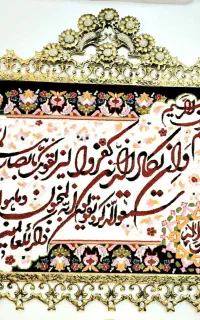 الرحيم
وان يكاد الذين كفروا ليزلقونك
سمعوا الذكر و يقولون انه لمجنون وما هو
ذكر للعالمين